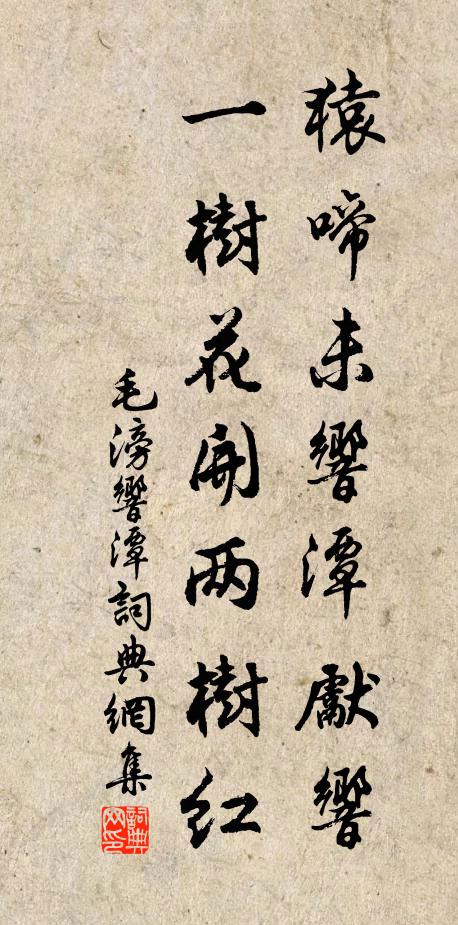 猿啼未響潭獻響
一樹花開两樹紅
毛滂響潭詞典網集
詞典网印